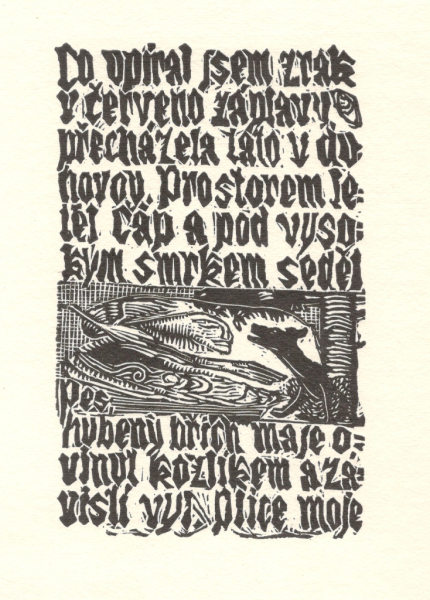 Co opíral jsem zrak
v červeno záplavy
přecházela tato v du-
hovou. Prostorem le-
těl čáp a pod vyso-
kým smrkem seděl
pes,
hubený břich maje o-
vinut kožlíkem a zá-
vislí vyl. Plíce moje